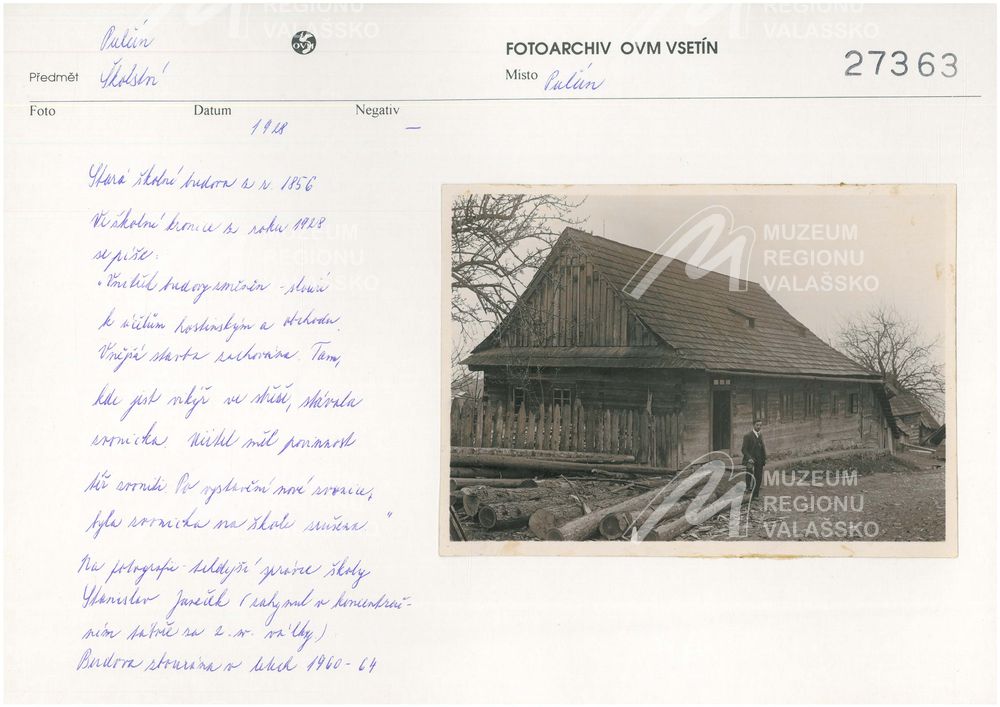 Pulčín
OVM
FOTOARCHIV OVM VSETÍN
27363
Předmět Školství
Misto Pulčín
Foto Datum Negativ
1928 —
Stará školní budova z r. 1856
Ve školní kronice z roku 1928
se píše:
"Vnitřek budovy změněn - slouží
k účelům hostinským a obchodu.
Vnější stavba zachována. Tam,
kde jest vikýř ve střeše, stávala
zvonička. Učitel měl povinnost
též zvoniti. Po vystavění nové zvonice,
byla zvonička na škole zrušena."
Na fotografii - tehdejší správce školy
Stanislav Javeček (zahynul v koncentrač-
ním táboře za 2. sv. války)
Budova zbourána v letech 1960-64
MUZEUM
REGIONU
VALAŠSKO
MUZEUM
REGIONU
VALAŠSKO
MUZEUM
REGIONU
VALAŠSKO
MUZEUM
REGIONU
VALAŠSKO
MUZEUM
REGIONU
VALAŠSKO